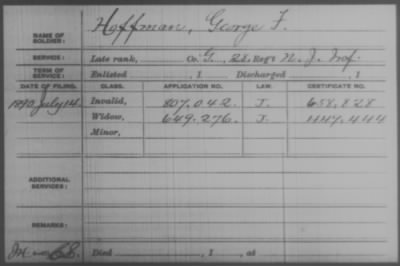 NAME OF SOLDIER: Hoffman, George F.
SERVICE: Late rank, Co. G, 28 Reg't N. J. Inf.
TERM OF SERVICE: Enlisted , 1 Discharged , 1
DATE OF FILING. CLASS. APPLICATION NO. LAW. CERTIFICATE NO.
1890 July 14. Invalid, 807.042. J. 658.828
Widow, 649.276. J.
Minor,
ADDITIONAL SERVICES:
REMARKS:
68. Died , 1 , at